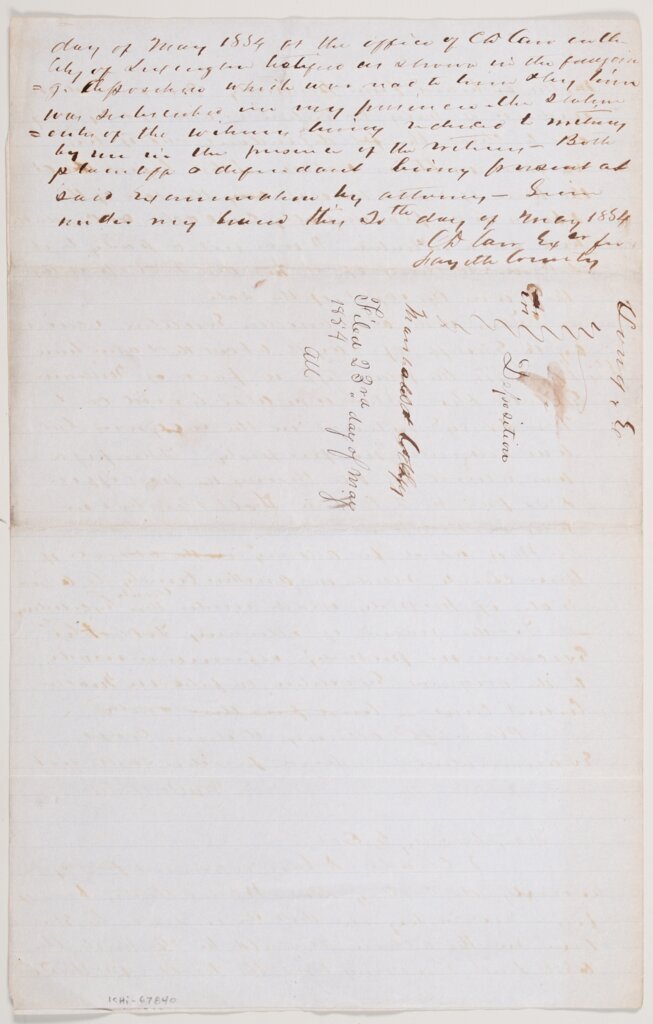 day of May 1854 at the office of CD Carr in the
City of Lexington as shown in the foregoin
= g deposition which was read to him & by him
was subscribed in my presence the statem
= ents of the witness being reduced to writing
by me in the presence of the witness – Both
plaintiff & defendant being present at
said examination by attorney – Given
under my hand this 20th day of May 1854
CD Carr Exr for
Fayette County
Deposition
Filed 23rd day of May
1854
ICHi-67840